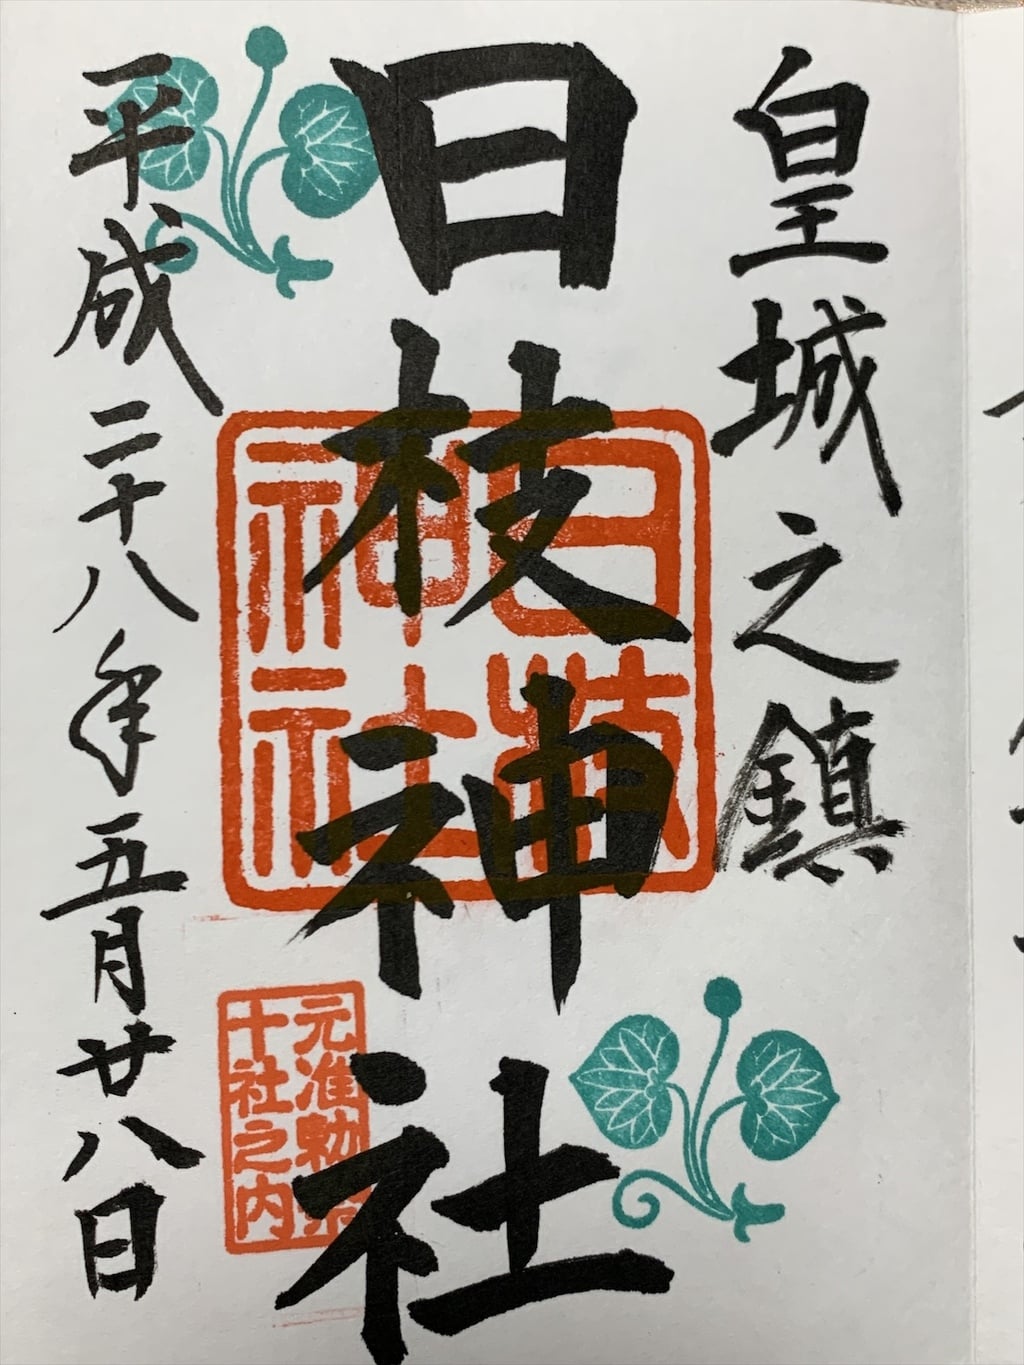 皇城之鎮
日枝神社
平成二十八年五月廿八日
日枝
神社
元准勅祭
十社之内